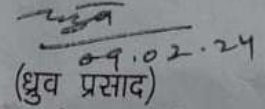 09.02.24
(ध्रुव प्रसाद)